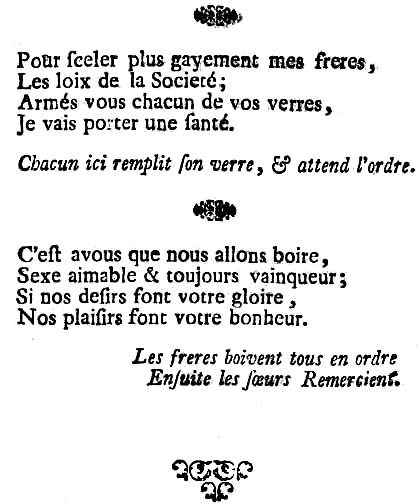 Pour ſceler plus gayement mes freres,
Les loix de la Societé;
Armés vous chacun de vos verres,
Je vais porter une ſanté.
Chacun ici remplit ſon verre, & attend l'ordre.
C'eſt avous que nous allons boire,
Sexe aimable & toujours vainqueur;
Si nos deſirs font votre gloire,
Nos plaiſirs font votre bonheur.
Les freres boivent tous en ordre
Enſuite les ſœurs Remercient.